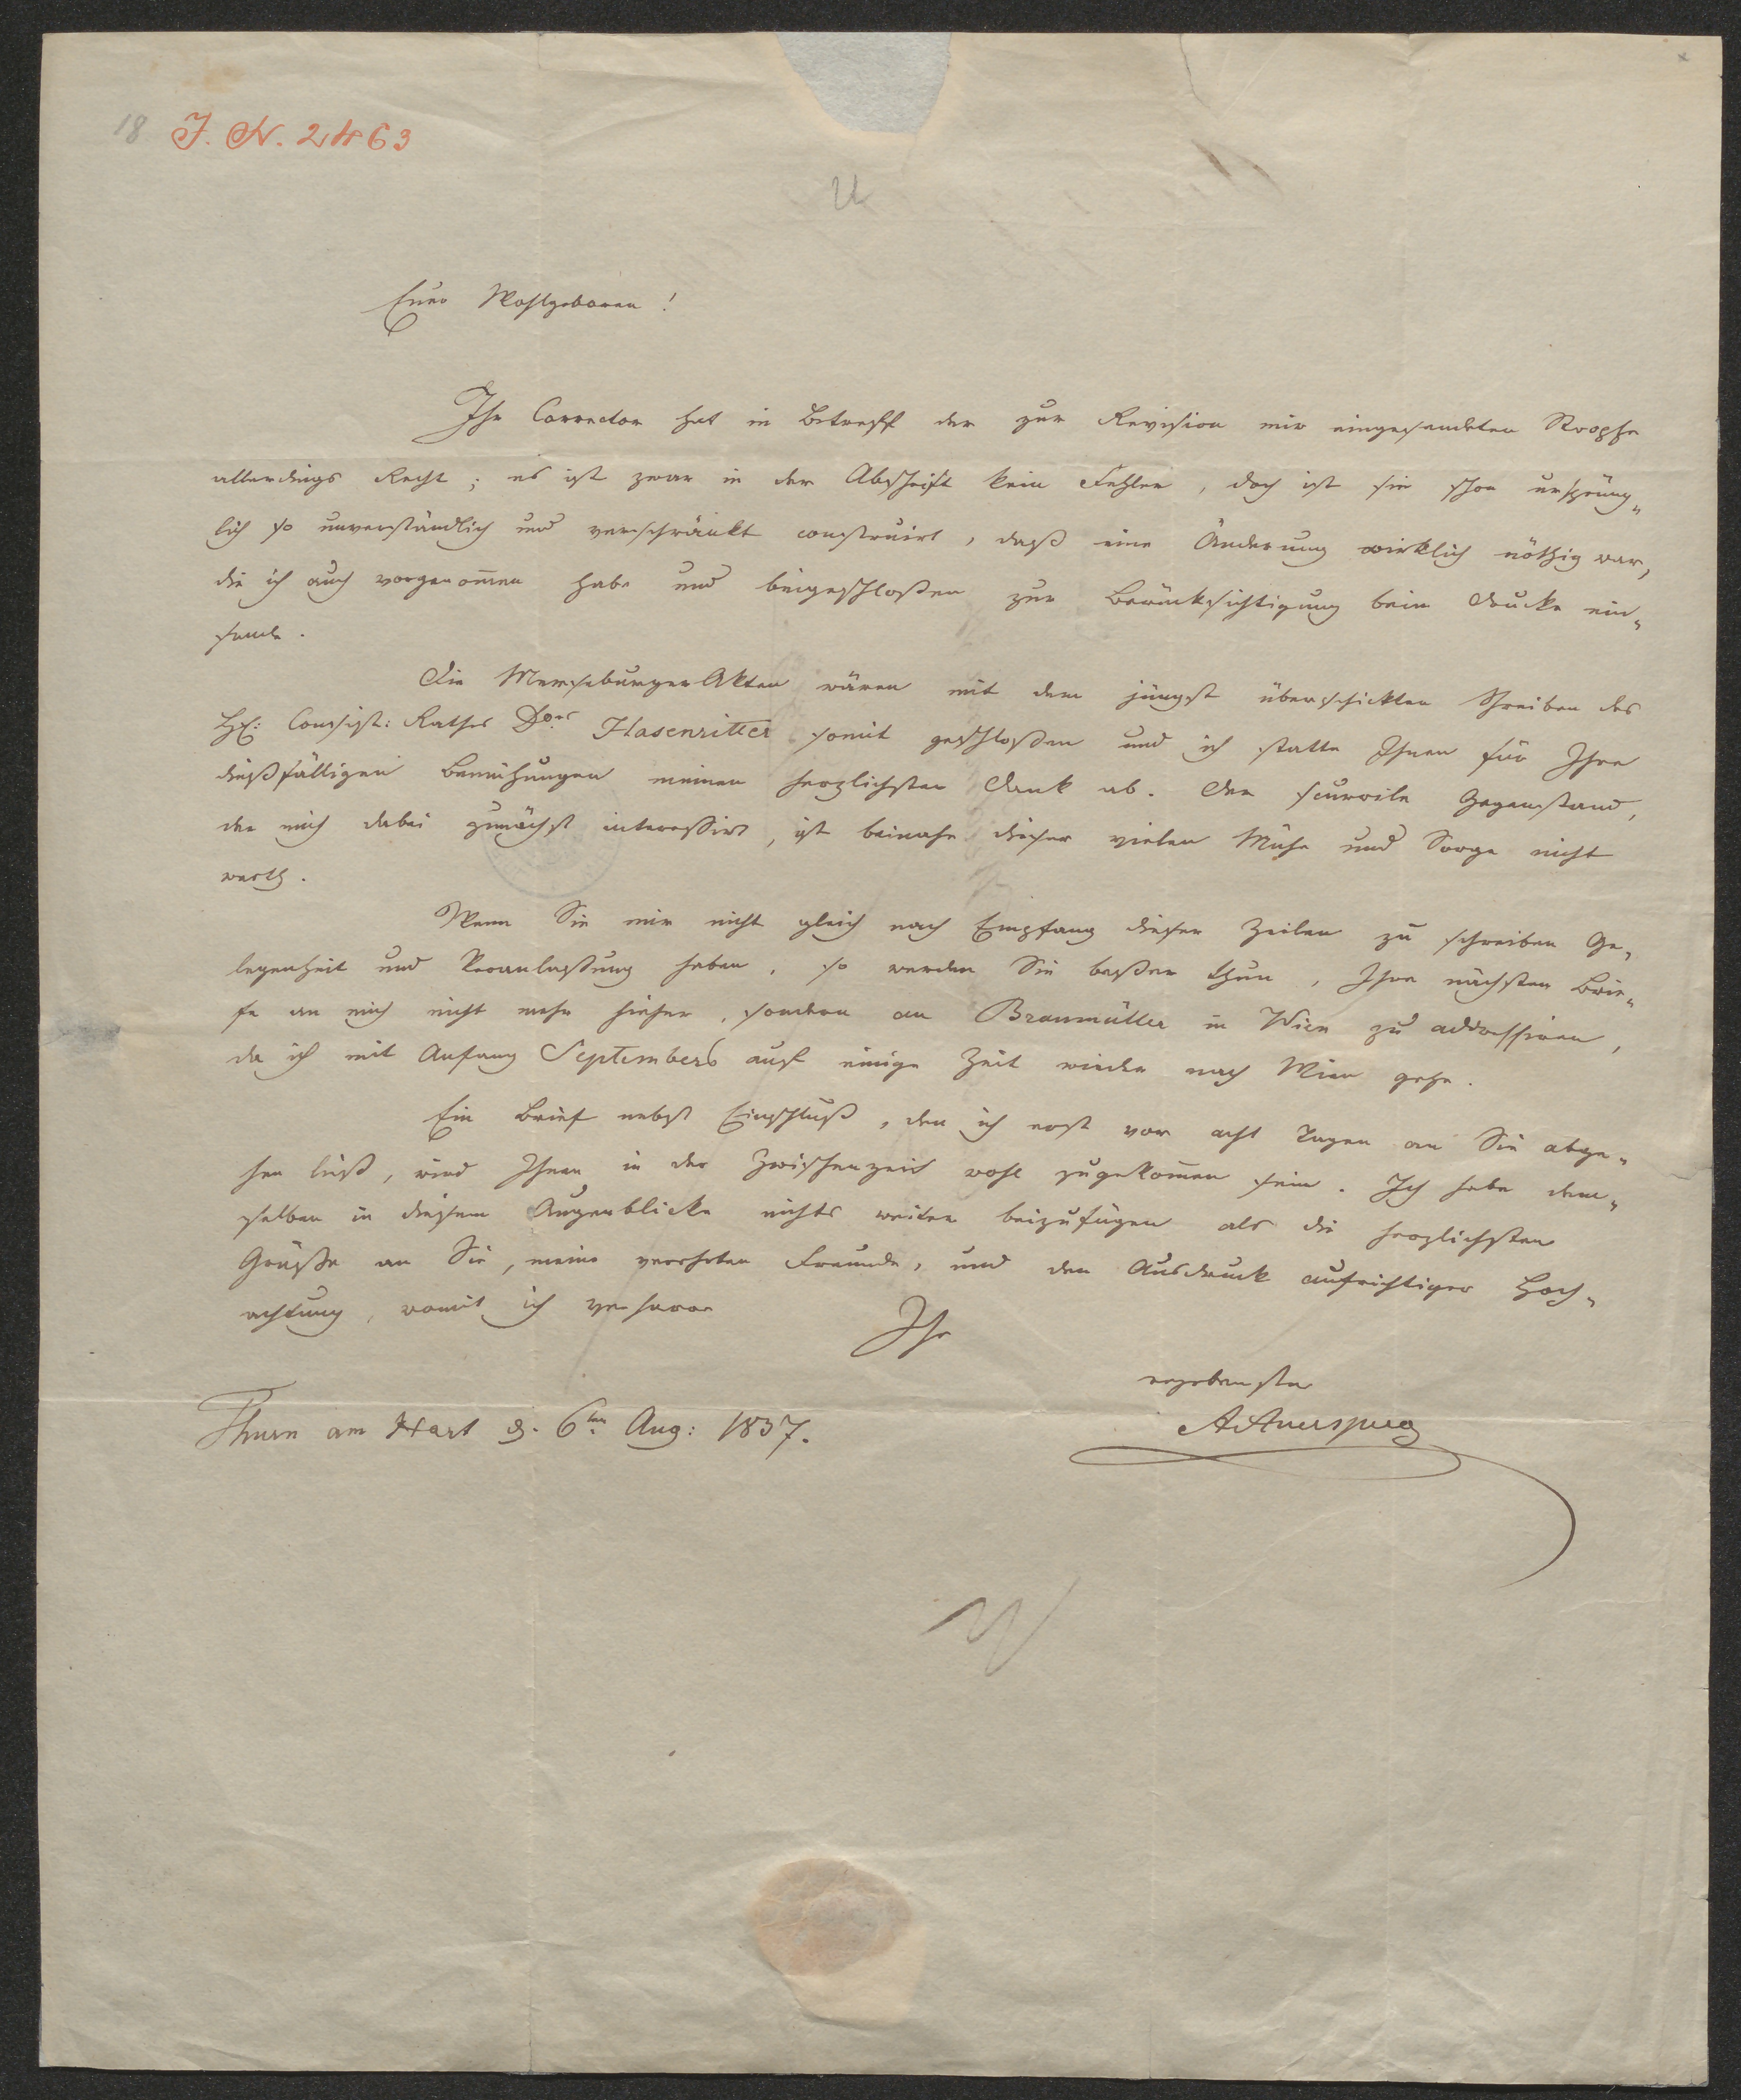 18 J. N. 2463
Euer Wohlgeboren!
Ihr Corrector hat in Betreff der zur Revision mir eingesandten Strophe
allerdings Recht; es ist zwar in der Abschrift kein Fehler, doch ist sie schon ursprüng„
lich so unverständlich und verschränkt construirt, daß eine Änderung wirklich nöthig war,
die ich auch vorgenom̄en habe und beigeschloßen zur Berücksichtigung beim Drucke ein„
sende.
Die Merseburger Akten wären mit dem jüngst überschickten Schreiben des
H: Consist: Rathes Dors Hasenritter somit geschloßen und ich statte Ihnen für Ihre
dießfälligen Bemühungen meinen herzlichsten Dank ab. Der scurrile Gegenstand,
der mich dabei zunächst interessirt, ist beinahe dieser vielen Mühe und Sorge nicht
werth.
Wenn Sie mir nicht gleich nach Empfang dieser Zeilen zu schreiben Ge„
legenheit und Veranlaßung haben, so werden Sie beßer thun, Ihre nächsten Brie„
fe an mich nicht mehr hieher, sondern an Braumüller in Wien zu addressiren,
da ich mit Anfang Septembers auf einige Zeit wieder nach Wien gehe.
Ein Brief nebst Einschluß, den ich erst vor acht Tagen an Sie abge„
hen ließ, wird Ihnen in der Zwischenzeit wohl zugekom̄en sein. Ich habe dem„
selben in diesem Augenblicke nichts weiter beizufügen als die herzlichsten
Grüße an Sie, meine verehrten Freunde, und den Ausdruck aufrichtiger Hoch„
achtung, womit ich verharre
Ihr
ergebenster
AAuersperg
Thurn am Hart d. 6ten Aug: 1837.